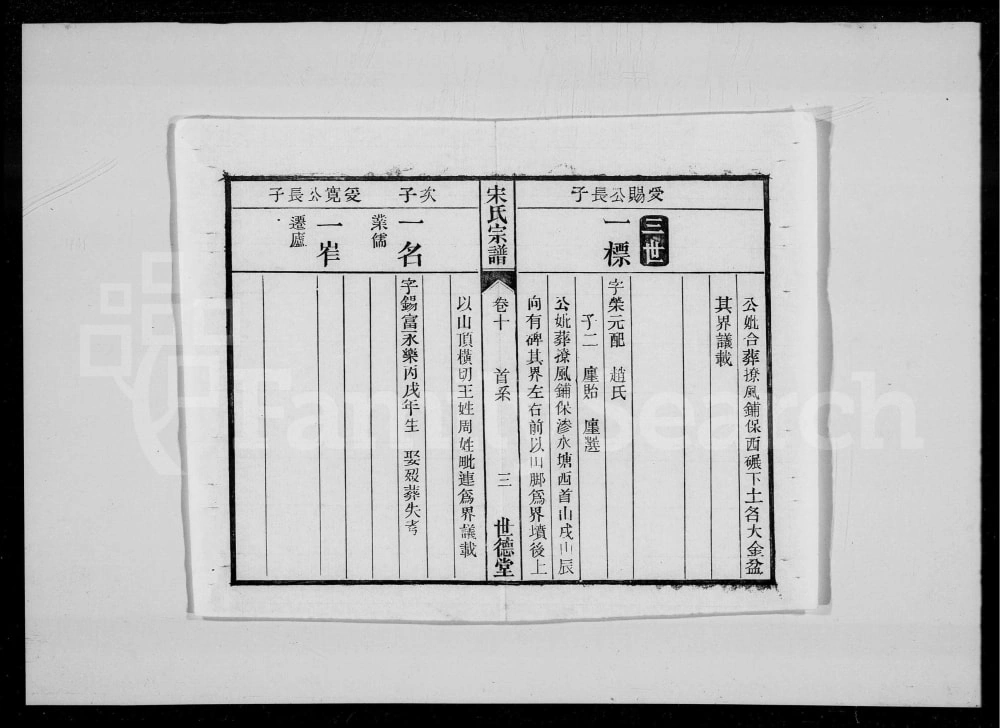 公妣合葬撩風鋪保西碾下土名大金盆
其界議載
三世
愛賜公長子
一標
字榮元配 趙氏
子二 廛貽 廛選
公妣葬撩風鋪保滲水塘西首山戌山辰
向有碑其界左右前以山脚爲界墳後上
宋氏宗譜
卷十 首系 三 世德堂
以山頂橫切王姓周姓毗連爲界議載
次子
一名
業儒
字錫富永樂丙戌年生 娶歿葬失考
愛寬公長子
一峷
遷廬